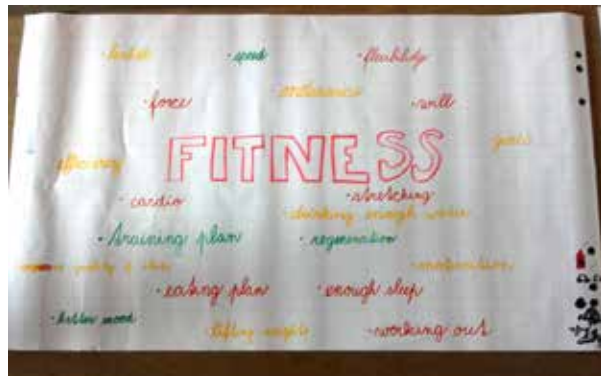 · speed
· flexibility
· force
endurance
· will
goals
efficiency
FITNESS
· cardio
· stretching
· drinking enough water
· training plan
· regeneration
· motivation
· eating plan
· enough sleep
· better mood
· lifting weights
· working out